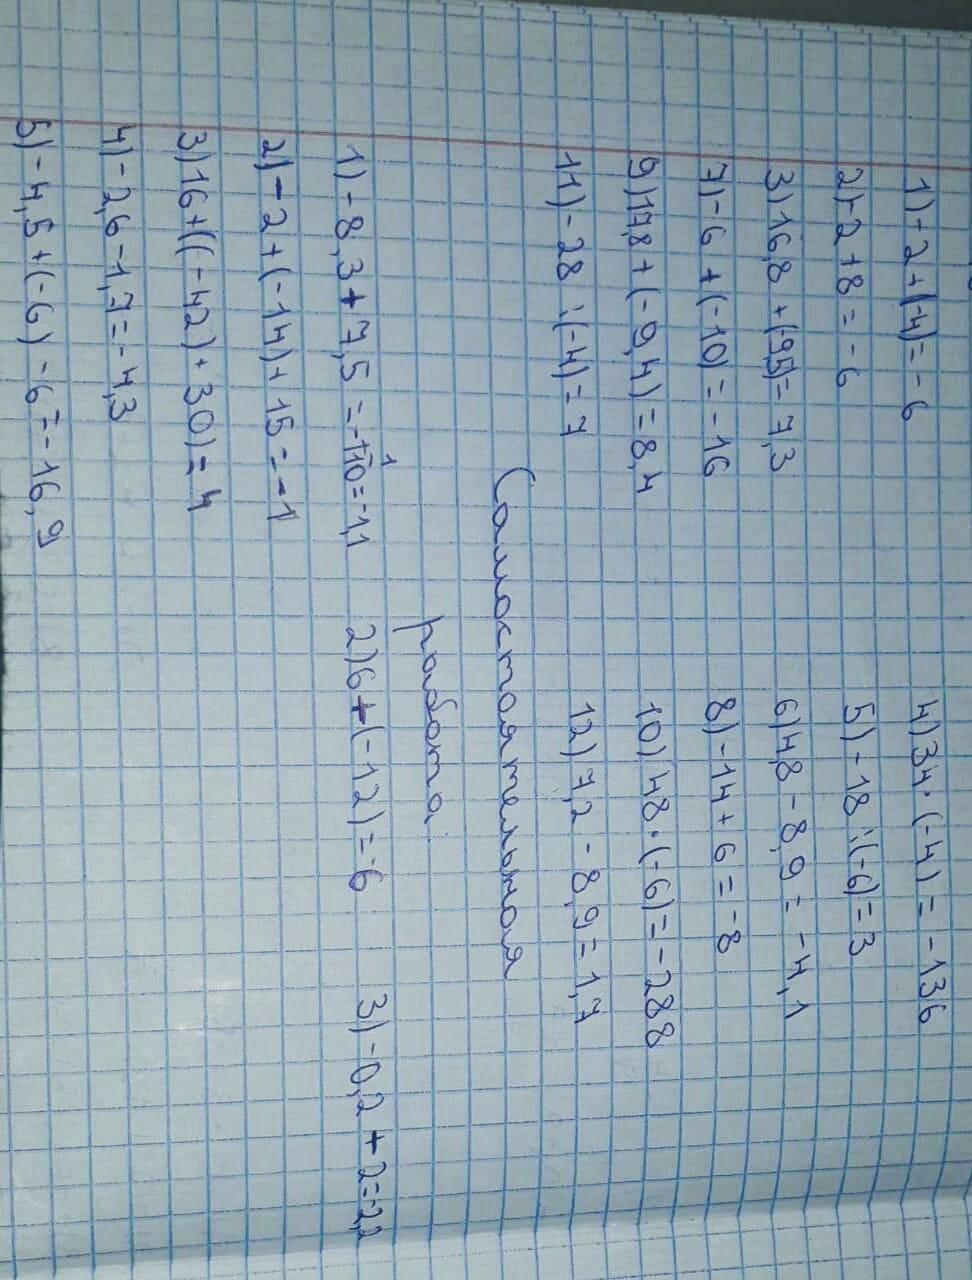 1) -2+(-4)=-6 4) 34·(-4)=-136
2) -2+8=-6 5) -18:(-6)=3
3) 16,8+(-9,5)=7,3 6) 4,8-8,9=-4,1
7) -6+(-10)=-16 8) -14+6=-8
9) 17,8+(-9,4)=8,4 10) 48·(-6)=-288
11) -28:(-4)=7 12) 7,2-8,9=1,7
Самостоятельная
работа.
1) -8,3+7,5= =-1,1 2) 6+(-12)=-6 3) -0,2+2=-2,2
2) -2+(-14)+15=-1
3) 16+((-42)+30)=4
4) -2,6-1,7=-4,3
5) -4,5+(-6)-6 -16,9